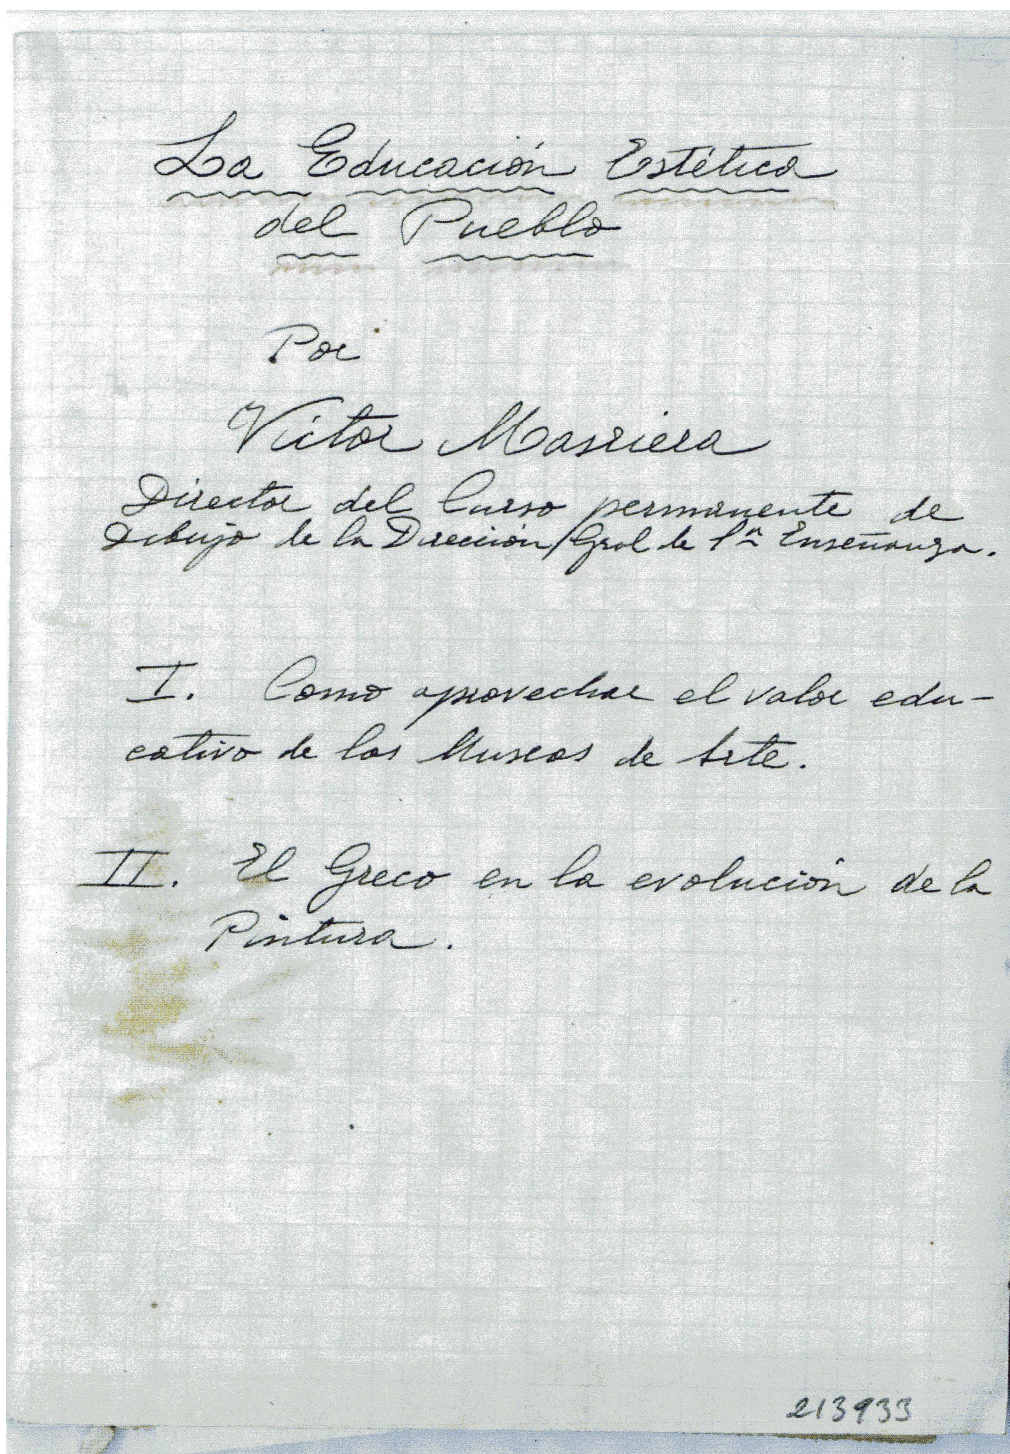 La Educación Estética
del Pueblo
Por
Víctor Masriera
Director del Curso permanente de
Dibujo de la Dirección Gral de 1ª Enseñanza.
I. Como aprovechar el valor edu-
cativo de los Museos de Arte.
II. El Greco en la evolución de la
Pintura.
213933